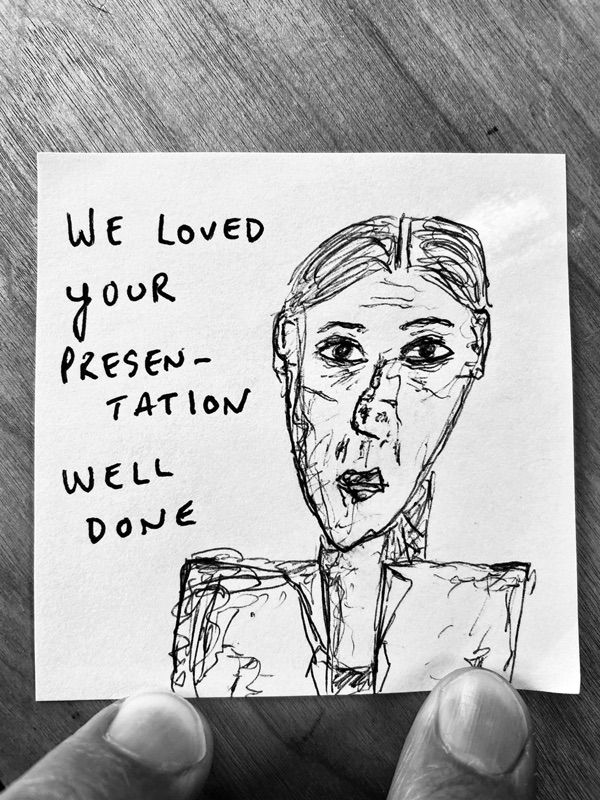 WE LOVED
YOUR
PRESEN-
TATION
WELL
DONE